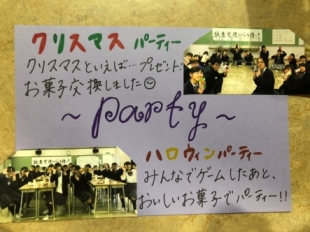 クリスマス パーティー
クリスマスといえば…プレゼント!
お菓子交換しました☺
~ party ~
ハロウィンパーティー
みんなでゲームしたあと、
おいしいお菓子でパーティー!!